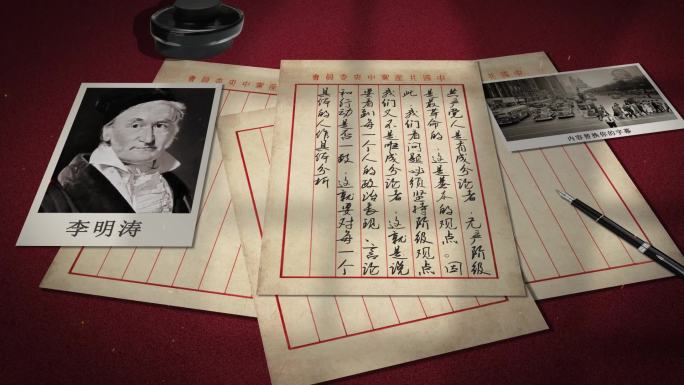 李明涛
中國共產黨中央委員會
共产党人是有成分论者，无产阶级
是最革命的，这是基本的观点。因
此，我们看问题必须坚持阶级观点
我们又不是唯成分论者，这就是说
要看到每一个人的政治表现、言论
和行动是否一致，这就要对每一个
具体的人作具体分析
内容替换你的字幕